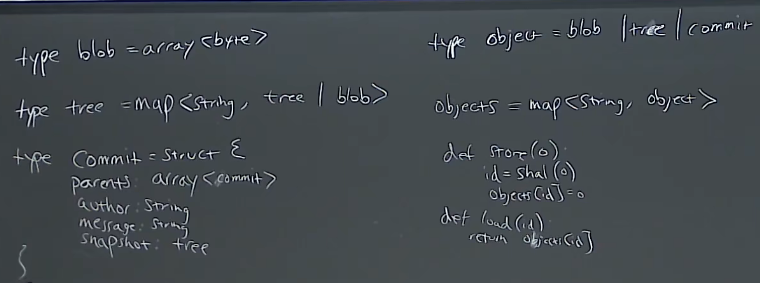 type blob = array<byte>
type tree = map<string, tree | blob>
type commit = struct {
parents: array<commit>
author: string
message: string
snapshot: tree
}
type object = blob | tree | commit
objects = map<string, object>
def store(o):
id = sha1(o)
objects[id] = o
def load(id):
return objects[id]